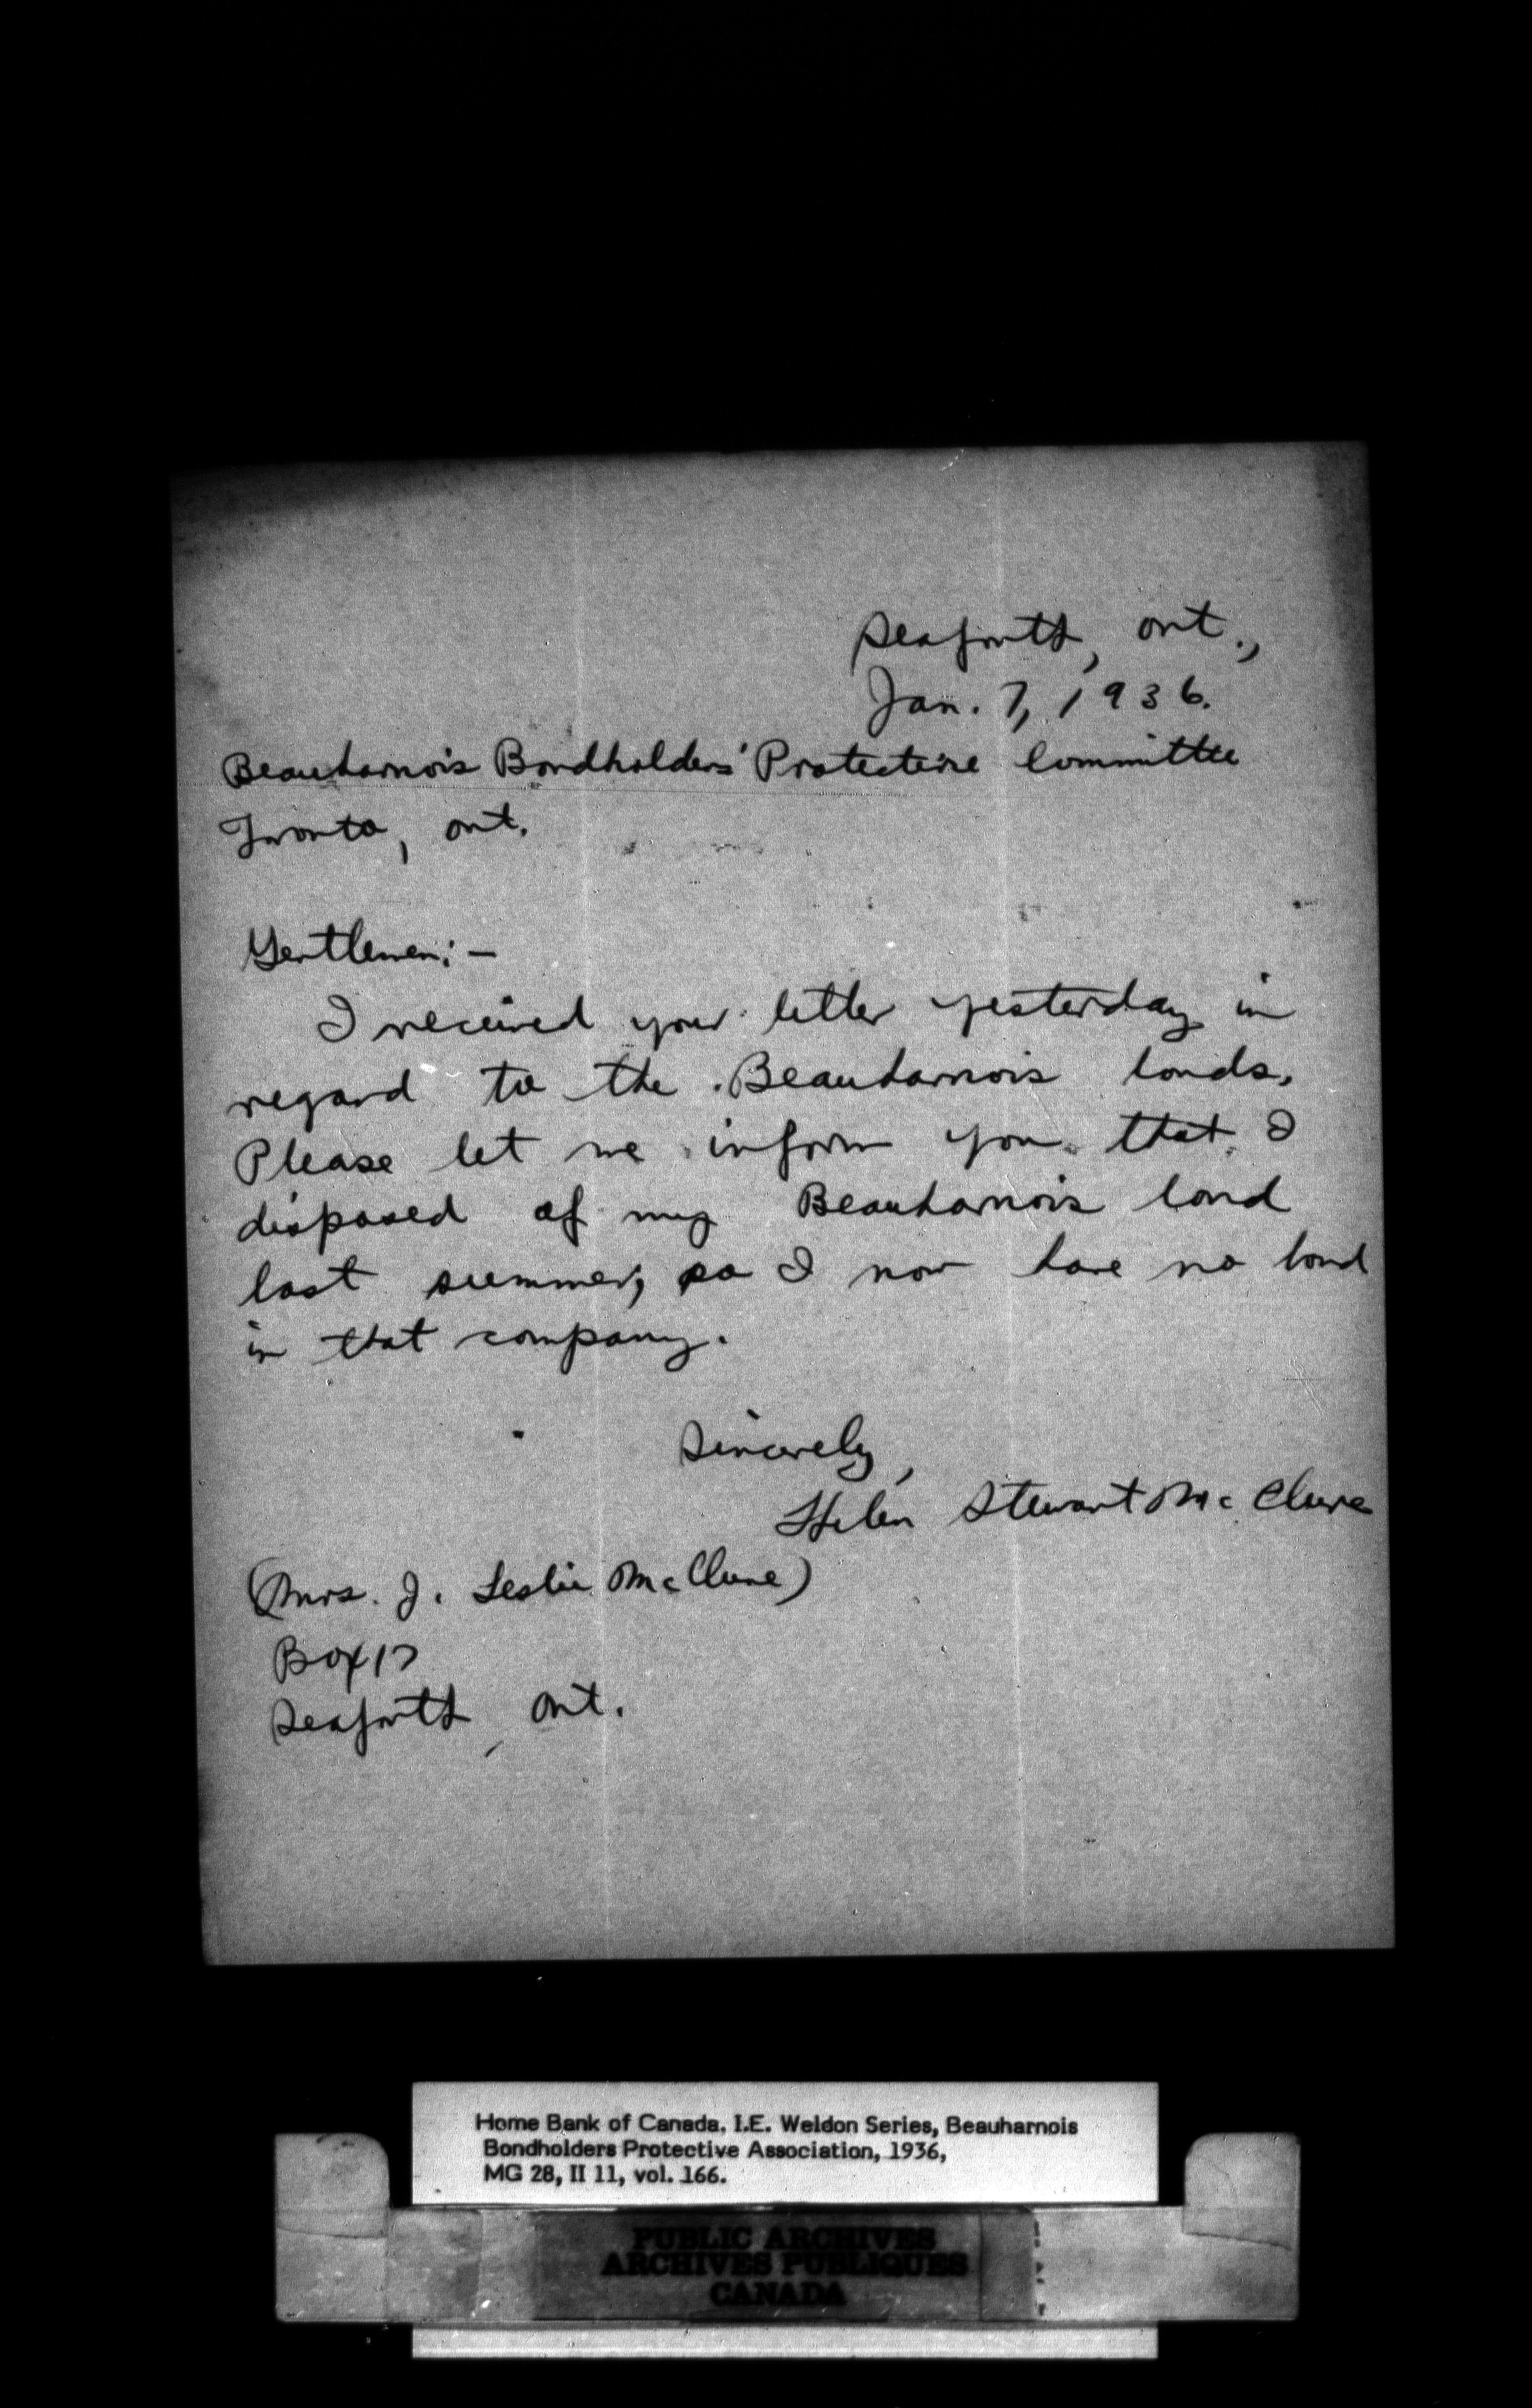 Seaforth, Ont.,
Jan. 7, 1936.
Beauharnois Bondholders' Protective Committee
Toronto, Ont.
Gentlemen:—
I received your letter yesterday in
regard to the Beauharnois bonds.
Please let me inform you that I
disposed of my Beauharnois bond
last summer, so I now have no bond
in that company.
Sincerely,
Helen Stewart McClure
(Mrs. J. Leslie McClure)
Box 17
Seaforth, Ont.
Home Bank of Canada. I.E. Weldon Series, Beauharnois
Bondholders Protective Association, 1936,
MG 28, II 11, vol. 166.
PUBLIC ARCHIVES
ARCHIVES PUBLIQUES
CANADA